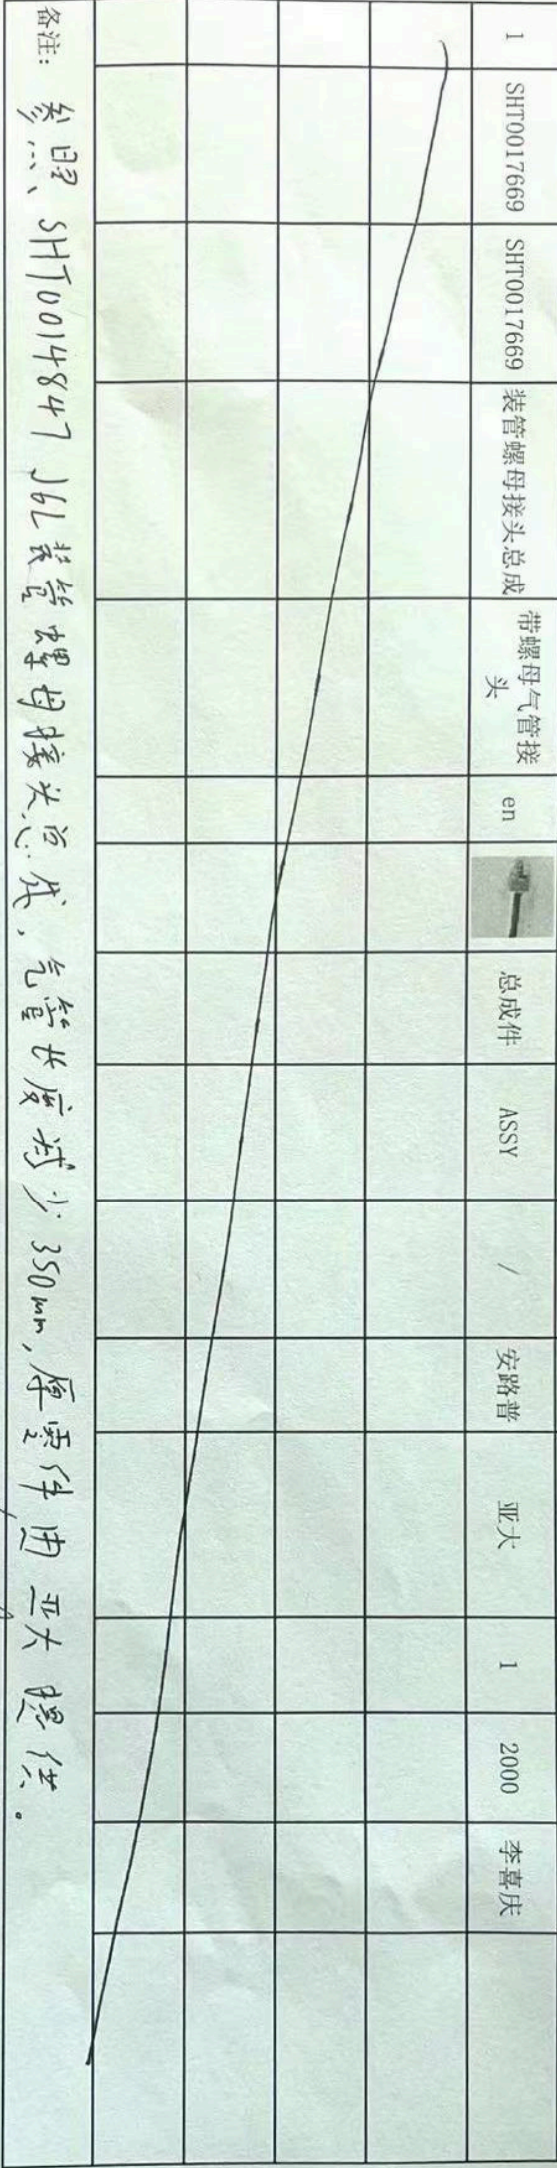 1 SHT0017669 SHT0017669 装管螺母接头总成 带螺母气管接头 en 总成件 ASSY / 安路普 亚大 1 2000 李喜庆
备注: 参照、SHT0014847 J6L装管螺母接头总成, 气管长度减少350mm, 库零件由亚大提供。